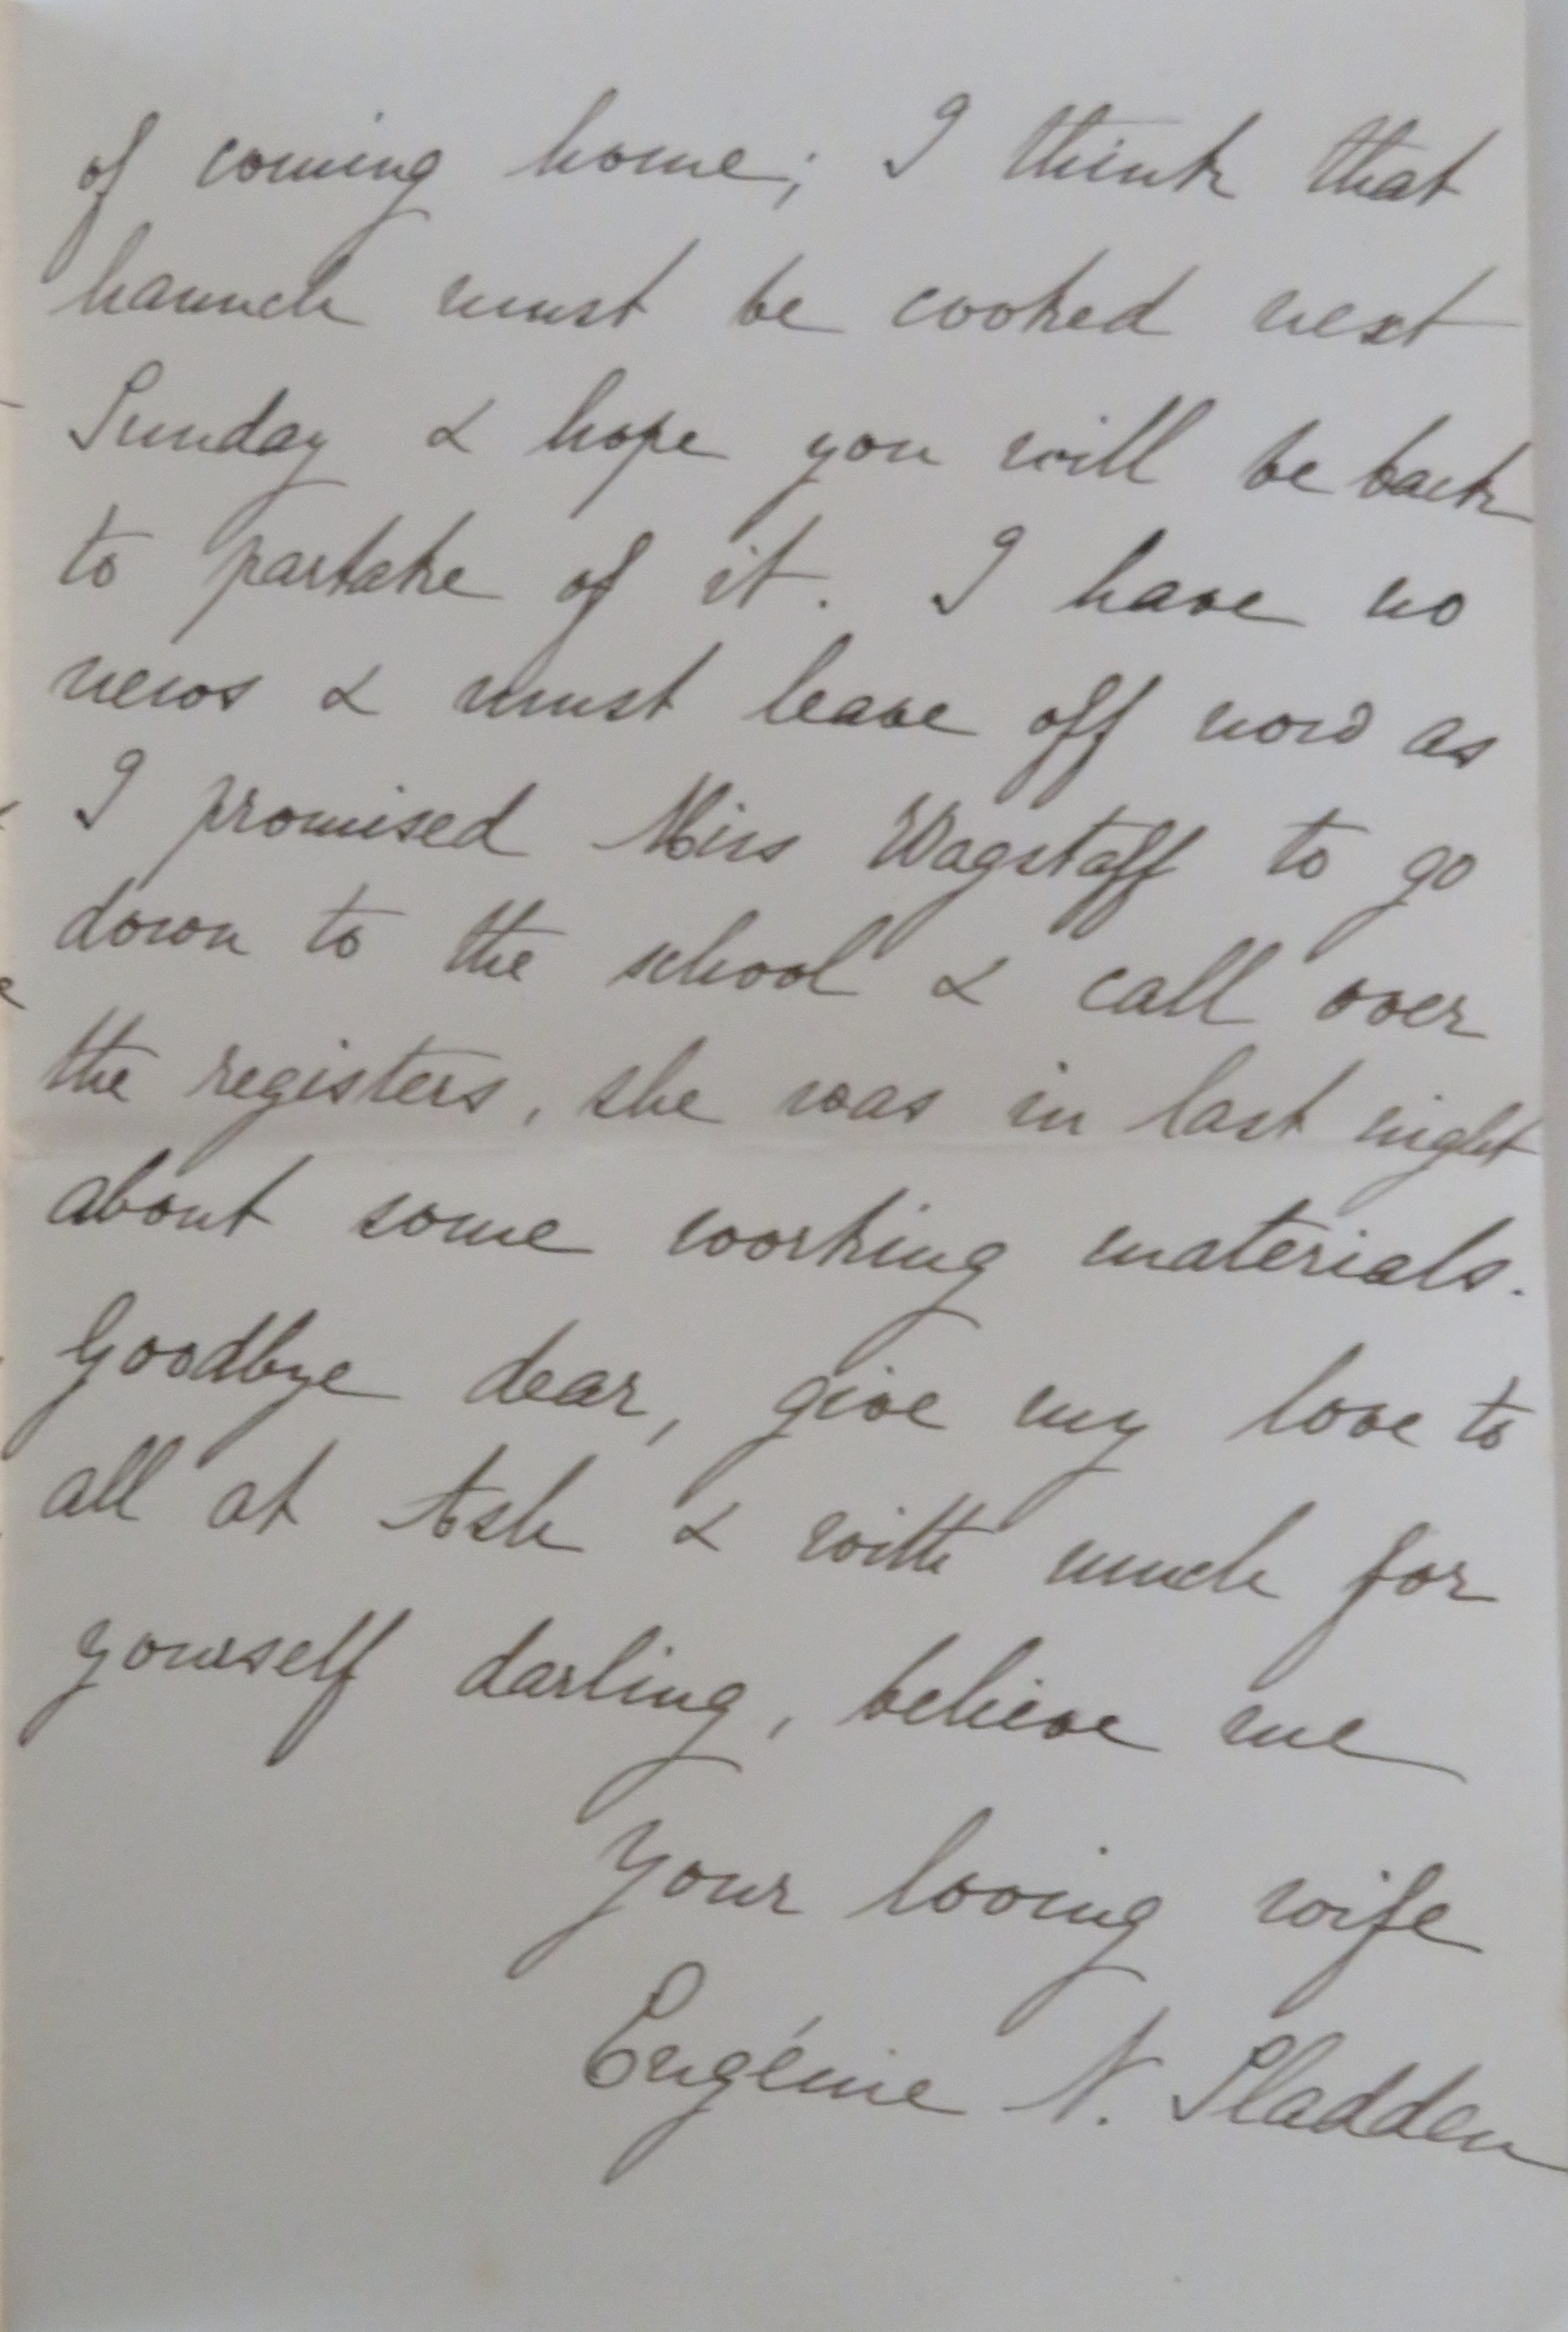 of coming home; I think that
haunch must be cooked next
Sunday & hope you will be back
to partake of it. I have no
news & must leave off now as
I promised Miss Wagstaff to go
down to the school & call over
the registers, she was in last night
about some working materials.
Goodbye dear, give my love to
all at Ash & with much for
yourself darling, believe me
Your loving wife
Eugénie N. Sladden